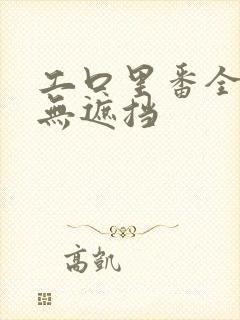 工口里番全
無遮挡
高凯